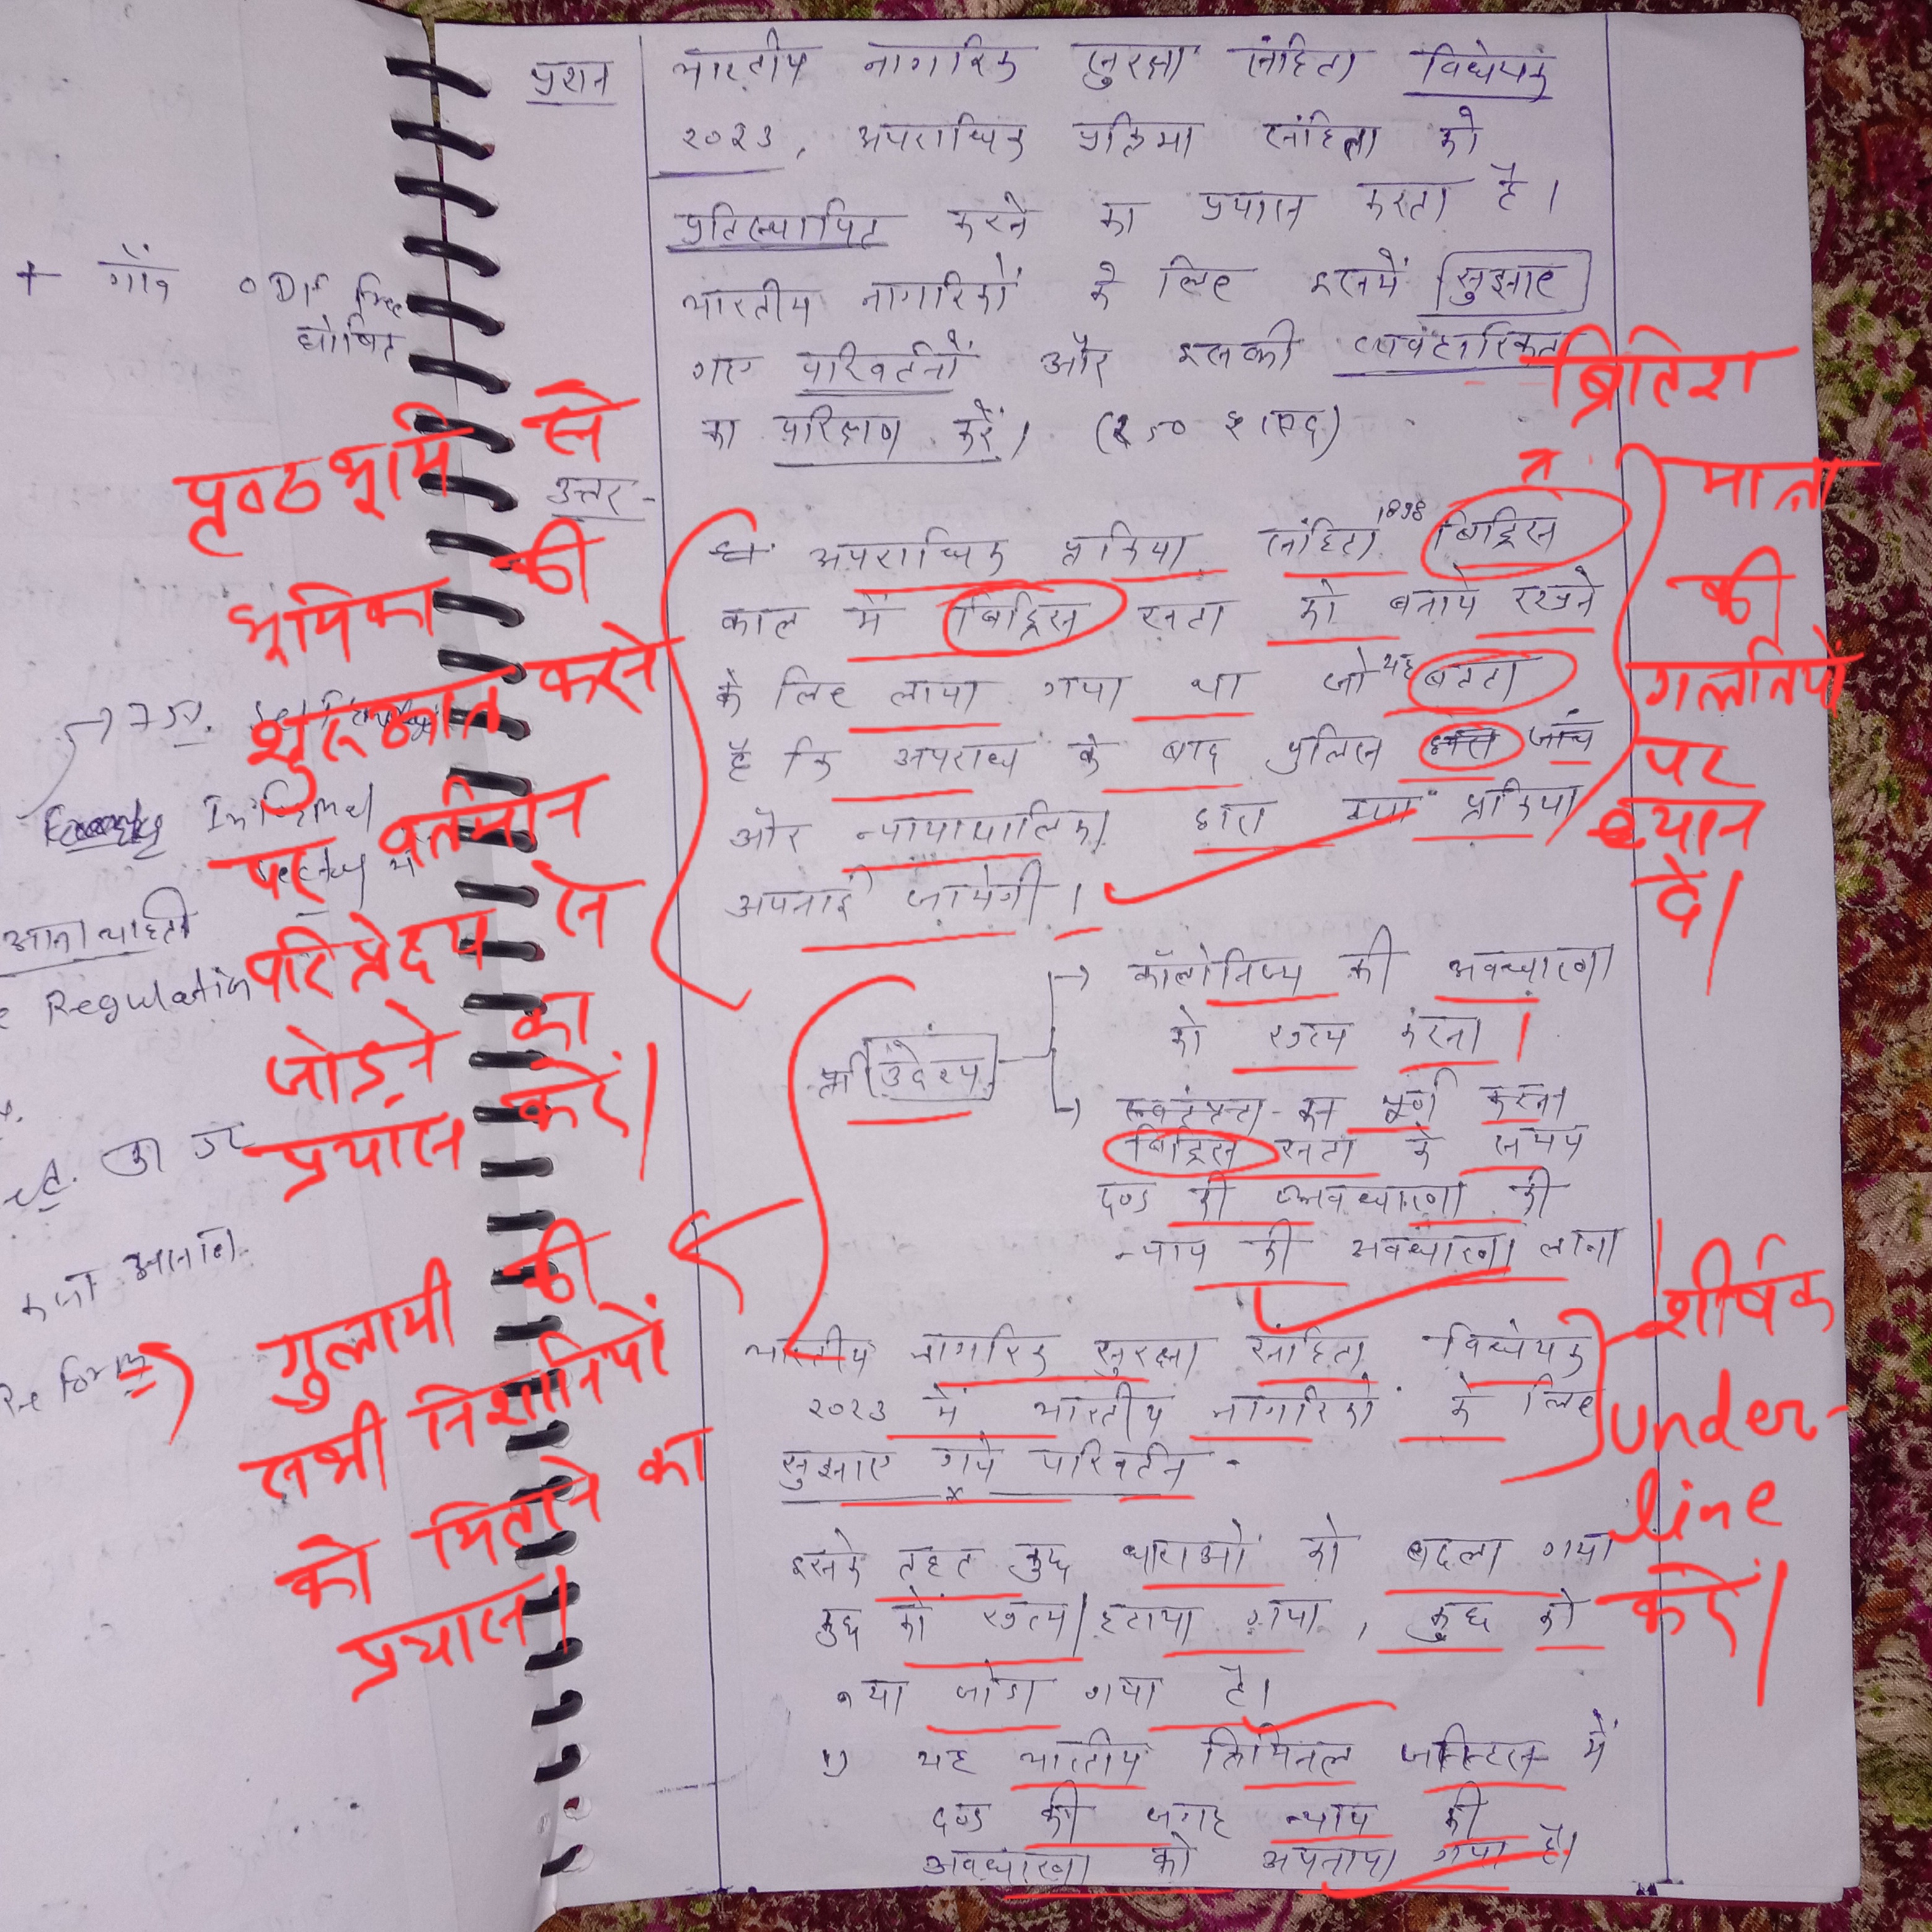 प्रशन
भारतीय नागरिक सुरक्षा संहिता विधेयक
२०२३, अपराधिक प्रक्रिया संहिता को
प्रतिस्थापित करने का प्रयास करता है।
भारतीय नागरिकों के लिए इसमें सुझाए
गए परिवर्तनों और इसकी व्यवहारिकता
का परिक्षण करें। (२५० शब्द)
उत्तर -
अपराधिक प्रक्रिया संहिता 1898 ब्रिट्रिस
काल में ब्रिट्रिस सत्ता को बनाये रखने
के लिए लाया गया था जो यह बतता
है कि अपराध के बाद पुलिस जांच
और न्यायापालिका द्वारा क्या प्रक्रिया
अपनाई जायेगी।
उदेश्य
→ कॉलोनिज्म की अवधारणा
को खत्म करना।
→ स्वतंत्रता का पूर्ण करना
ब्रिट्रिस सत्ता के समय
दण्ड की अवधारणा की
न्याय की अवधारणा लाना
भारतीय नागरिक सुरक्षा संहिता विधेयक
२०२३ में भारतीय नागरिकों के लिए
सुझाए गये परिवर्तन -
इसके तहत कुछ धाराओं को बदला गया
कुछ को खत्म/हटाया गया, कुछ को
नया जोडा गया है।
1) यह भारतीय क्रिमिनल जस्टिस में
दण्ड की जगह न्याय की
अवधारणा को अपनाया गया है।
+ गाँव ODF free
घोषित
75%
Informal
Regulation
Reform
पृष्ठभूमि से
भूमिका की
शुरूआत करने
पर वर्तमान
परिप्रेक्ष्य से
जोड़ने का
प्रयास करें।
गुलामी की
सभी निशानियों
को मिटाने का
प्रयास।
ब्रिटिश
मात्रा
की
गलतियों
पर
ध्यान
दें।
शीर्षक
under-
line
करें।